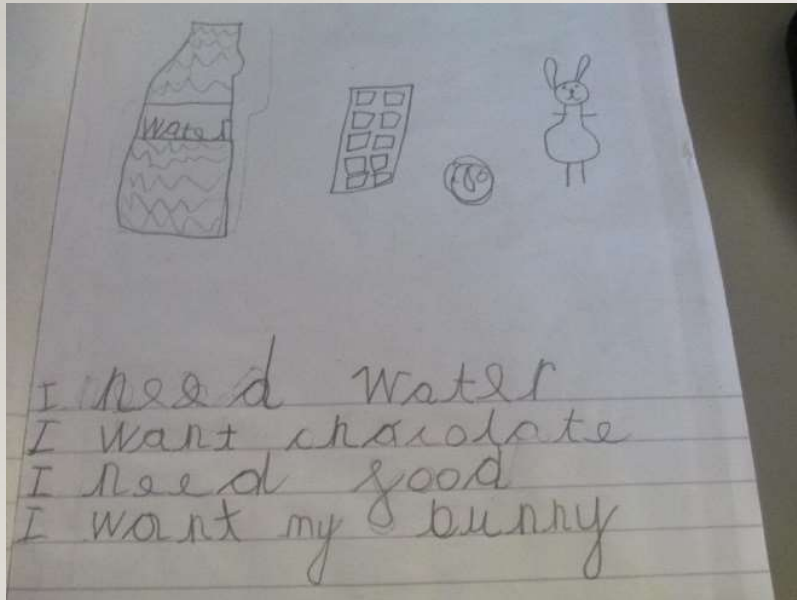 Water
I need Water
I want chocolate
I need food
I want my bunny